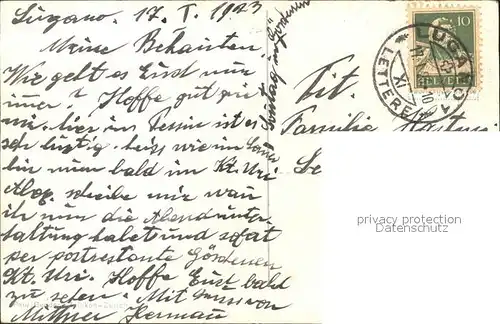 Lugano. 17. I. 1923
Meine Bekannten
Wie geht es Euch nur
immer? Hoffe gut
mir. hier im Tessin ist es
sehr lustig. heiss wie im
bin nun bald im Kt. Uri
Also schreibe mir wan
ihr nun die Abendunter-
haltung habet und sofat
per postrestante Göschenen
Kt. Uri. Hoffe Euch bald
zu sehen. Mit Gruss von
Mittner Herman
Sonntag in Göschenen
Tit.
Familie
10
HELVETIA
LUGANO
LETTERE
XI
privacy protection
Datenschutz